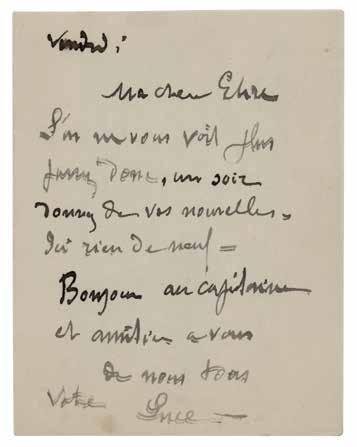 Vendredi
Ma chere Elise
L'on ne vous voit plus
Passez donc, un soir
Donnez de vos nouvelles.
Ici rien de neuf =
Bonjour au capitaine
et amitiés a vous
de nous tous
Votre Luce